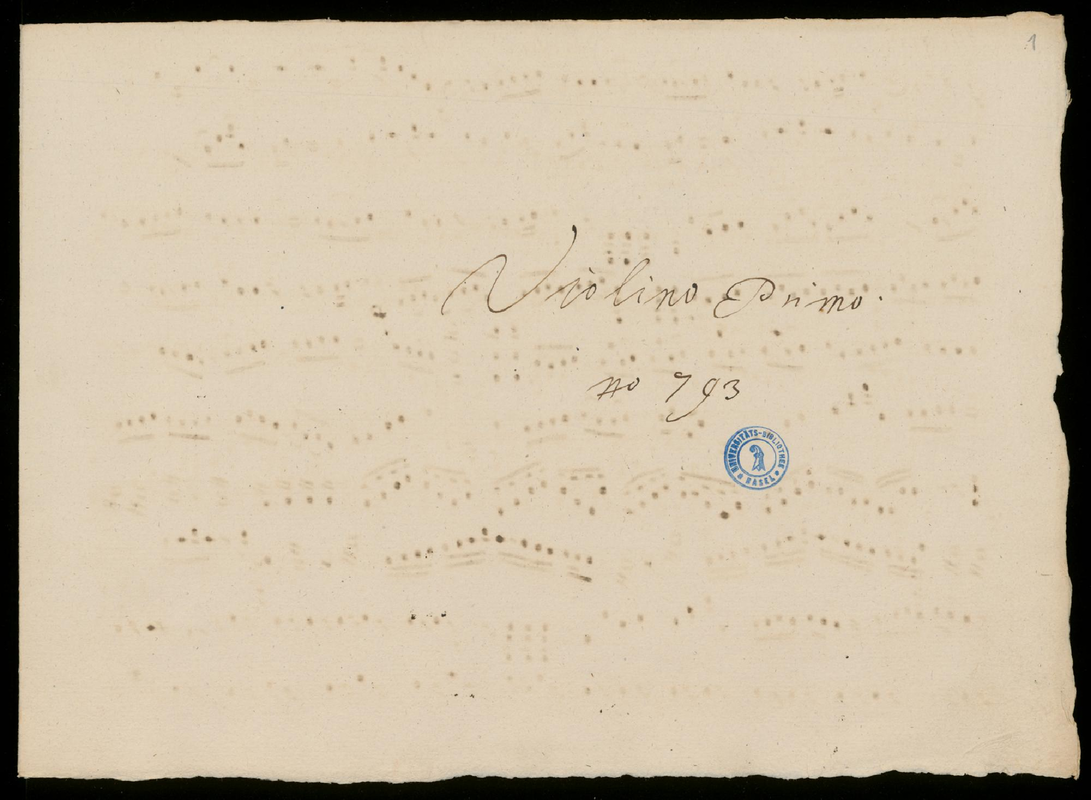 1
Violino Primo.
no 793
UNIVERSITÄTS-BIBLIOTHEK
BASEL